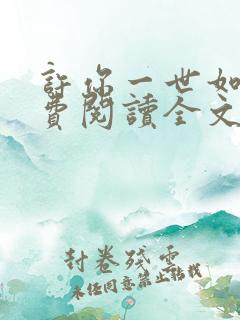 許你一世如
費閱讀全文
封卷殘雲
未經同意禁止轉載